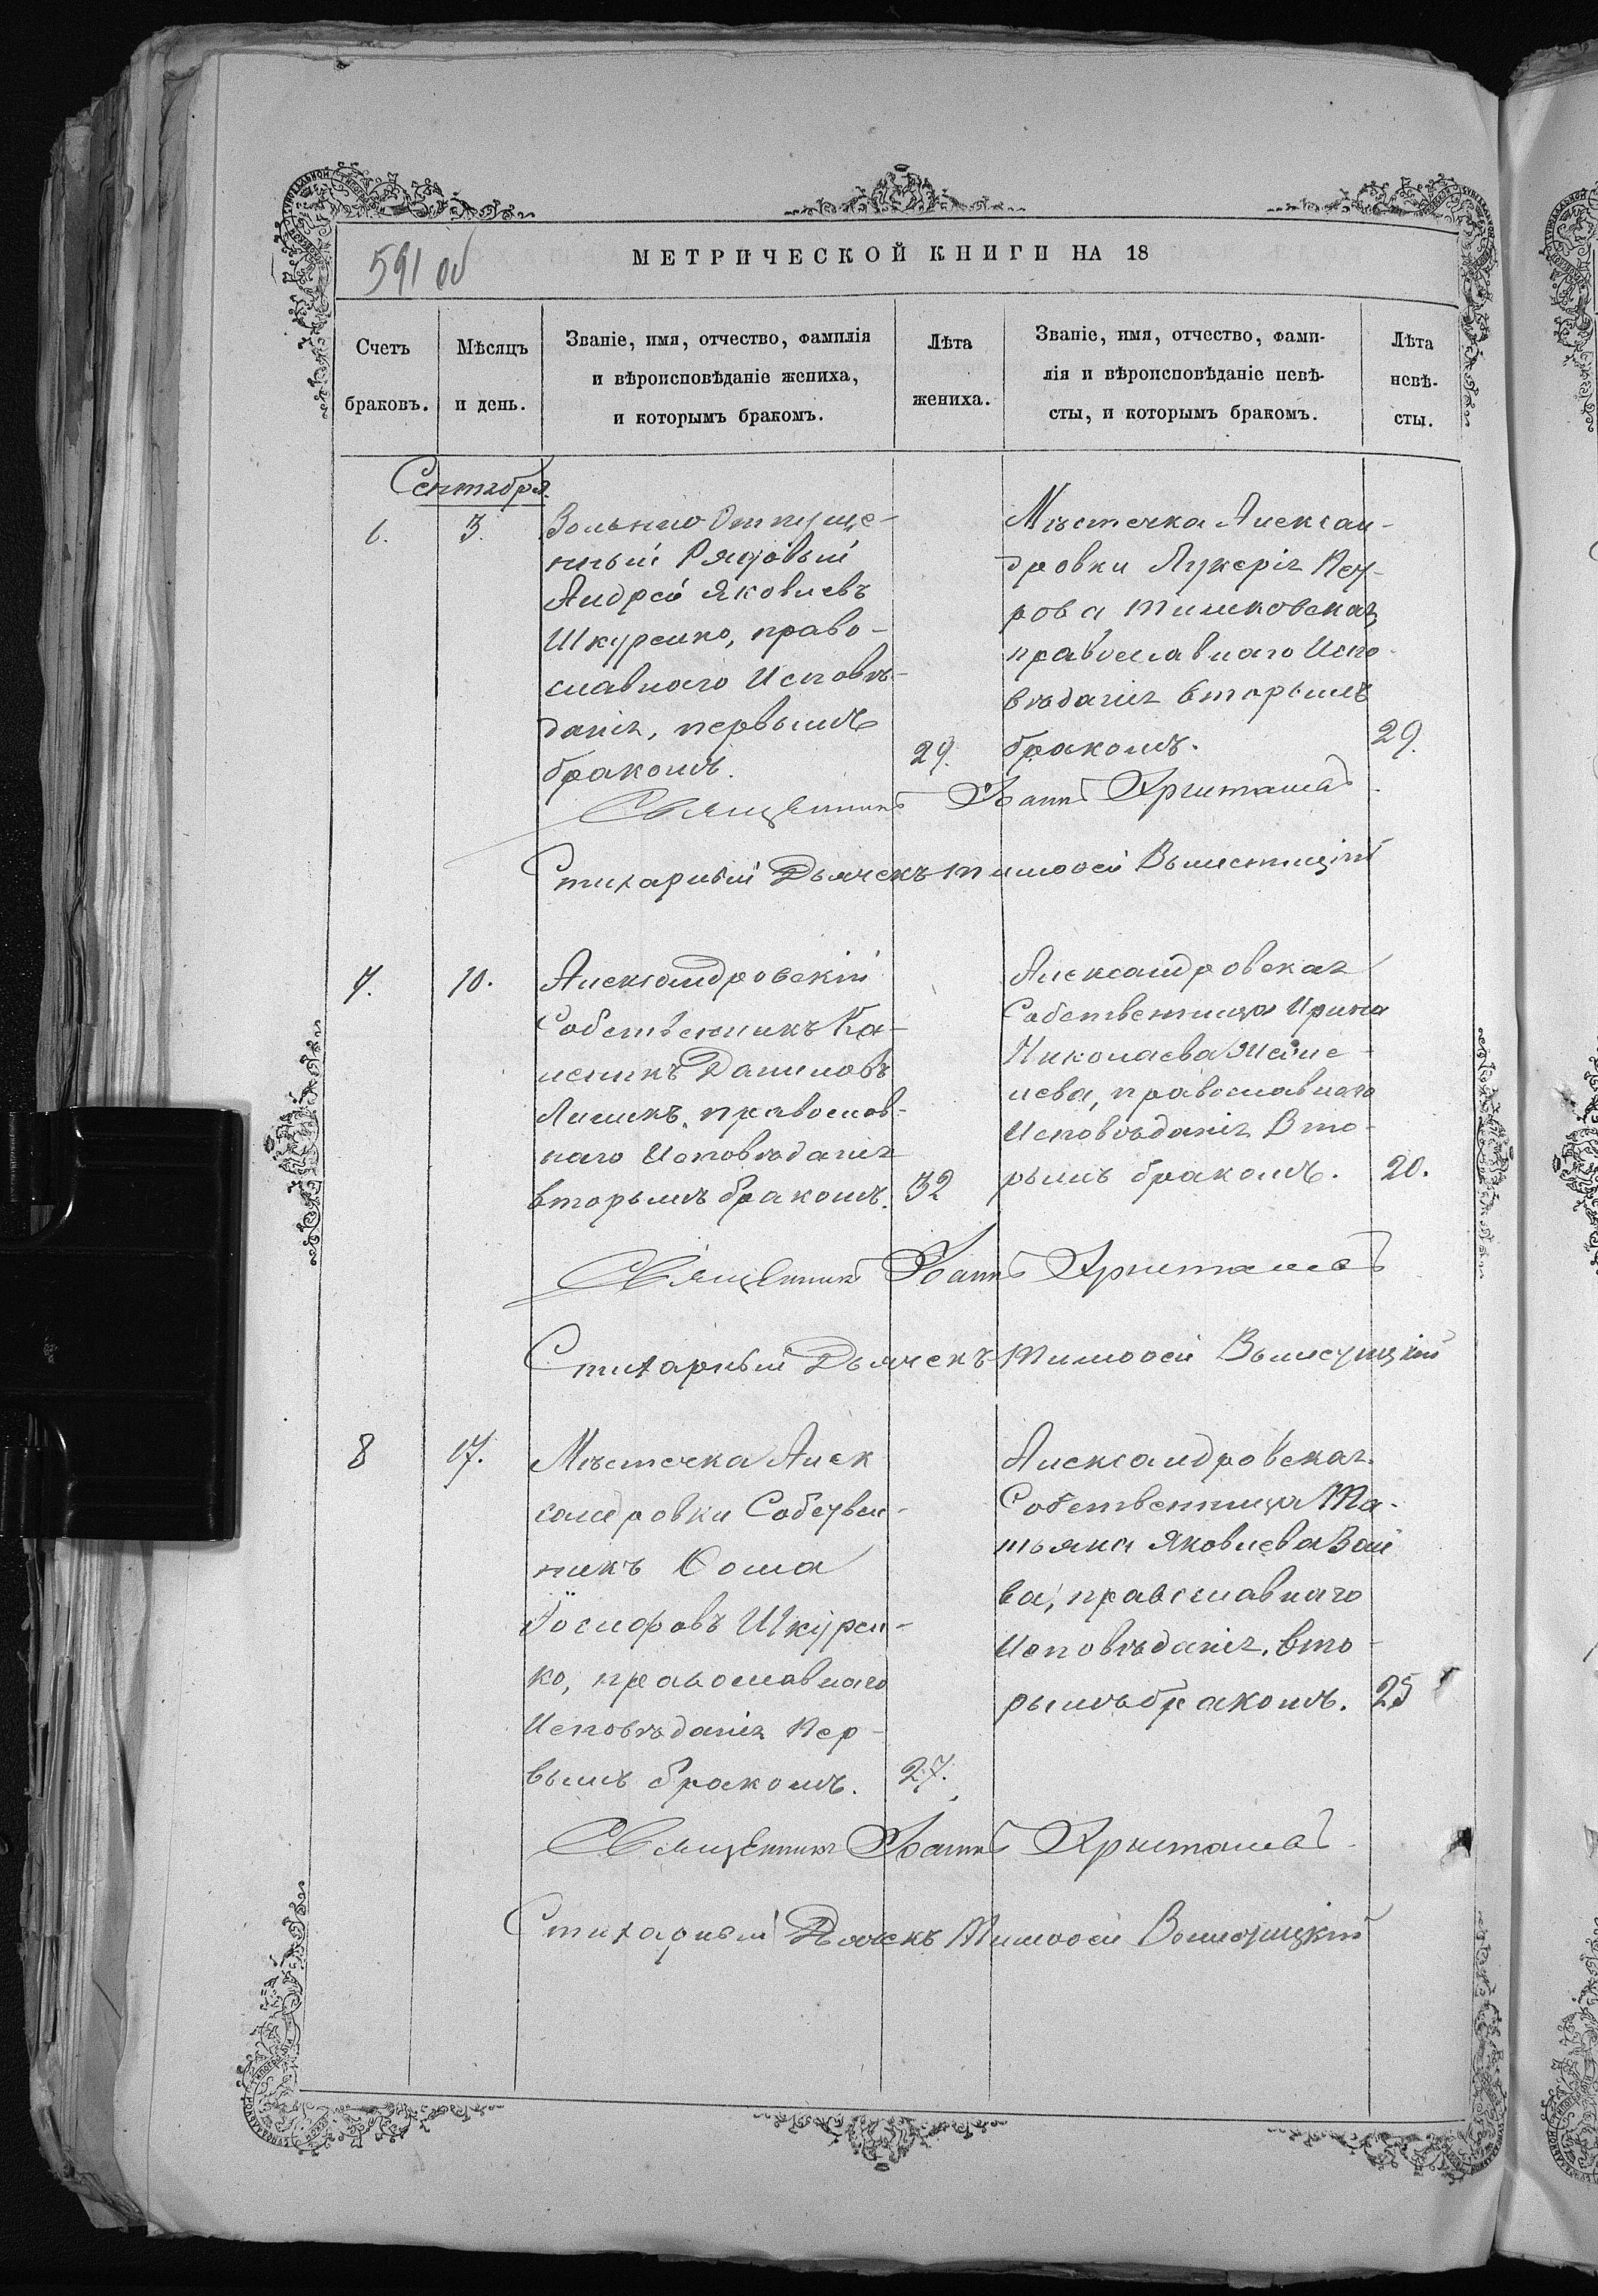 591 об
МЕТРИЧЕСКОЙ КНИГИ НА 18
Счетъ браковъ.
Мѣсяцъ и день.
Званіе, имя, отчество, фамилія
и вѣроисповѣданіе жениха,
и которымъ бракомъ.
Лѣта жениха.
Званіе, имя, отчество, фами-
лія и вѣроисповѣданіе невѣ-
сты, и которымъ бракомъ.
Лѣта невѣ-
сты.
Сентября
6. 3.
Вольно Отпуще-
нный Рядовый
Андрей Яковлевъ
Шкуренко, право-
славнаго Исповѣ-
данія, первымъ
бракомъ.
29.
Мѣстечка Алексан-
дровки Лукерія Пет-
рова
православнаго Испо-
вѣданія вторымъ
бракомъ.
29.
Священникъ Іоаннъ
Стихарный Дьячекъ Тимоѳей
7. 10.
Александровскій
Собственникъ Ка-
леникъ Даниловъ
православ-
наго Исповѣданія
вторымъ бракомъ.
32
Александровская
Собственница Ирина
Николаева
лева, православнаго
Исповѣданія Вто-
рымъ бракомъ.
20.
Священникъ Іоаннъ
Стихарный Дьячекъ Тимоѳей
8 17.
Мѣстечка Алек
сандровки Собствен-
никъ Ѳома
Іосифовъ Шкурен-
ко, православнаго
Исповѣданія Пер-
вымъ бракомъ.
27.
Александровская
Собственница Та-
тьяна Яковлева
ва, православнаго
Исповѣданія, вто-
рымъ бракомъ.
25
Священникъ Іоаннъ
Стихарный Дьячекъ Тимоѳей